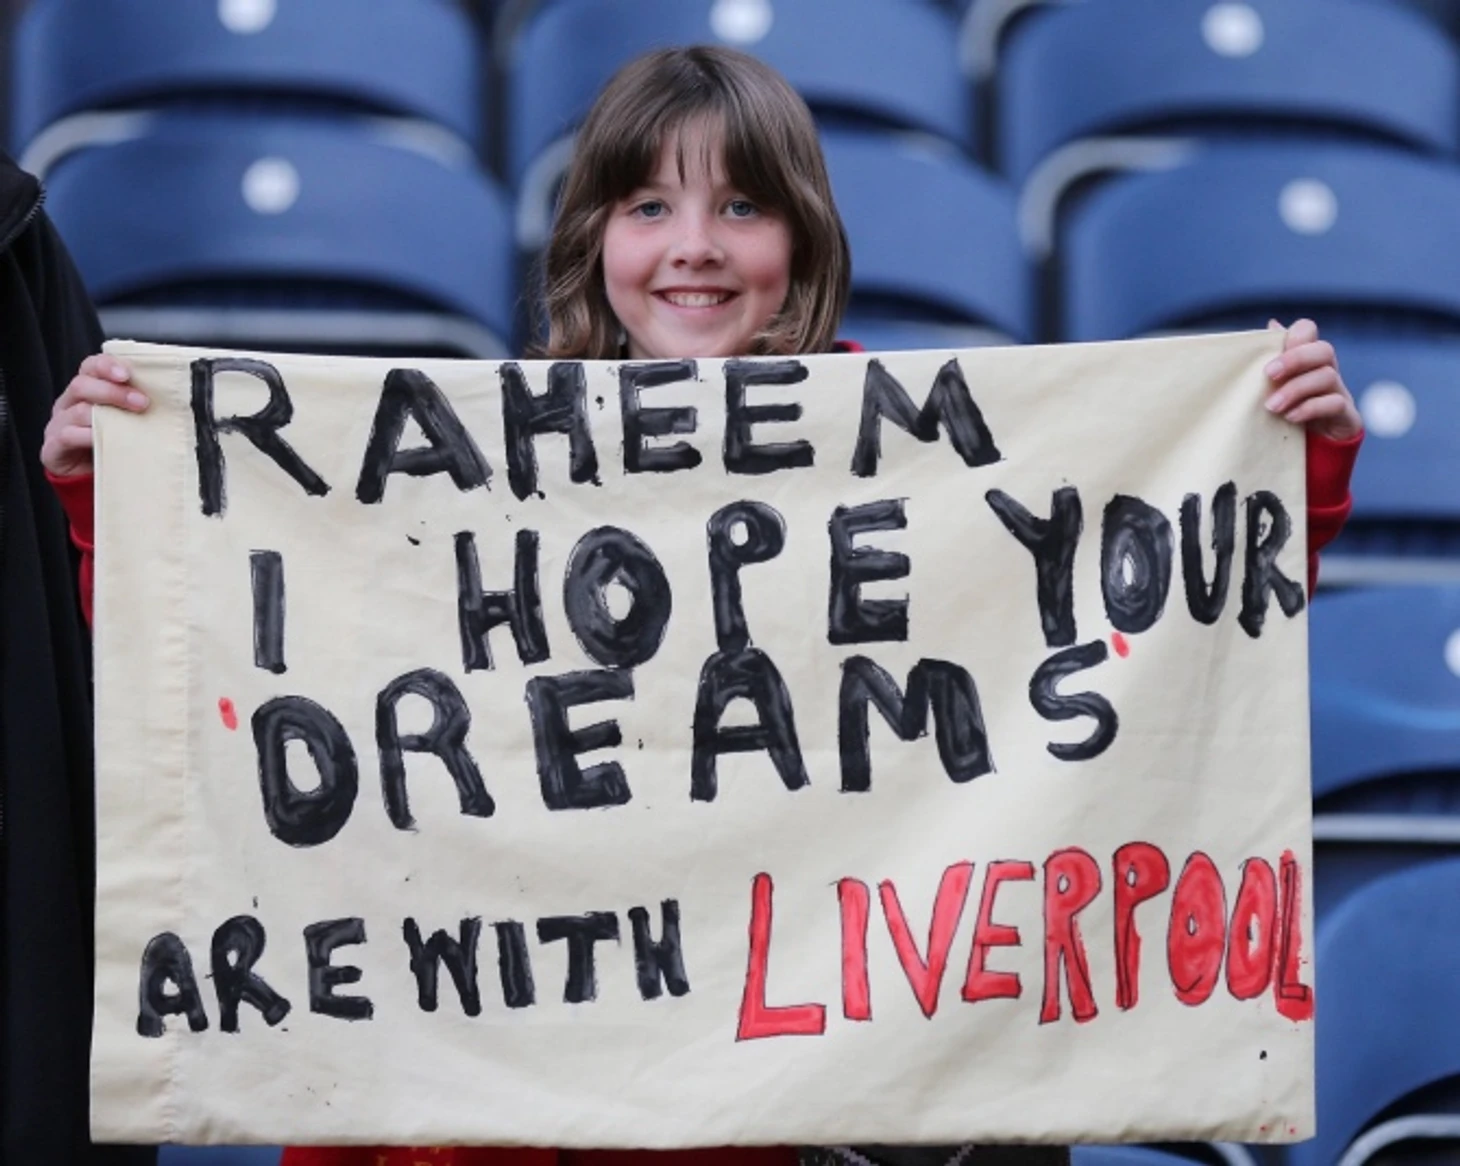 RAHEEM
I HOPE YOUR
'DREAMS'
ARE WITH LIVERPOOL